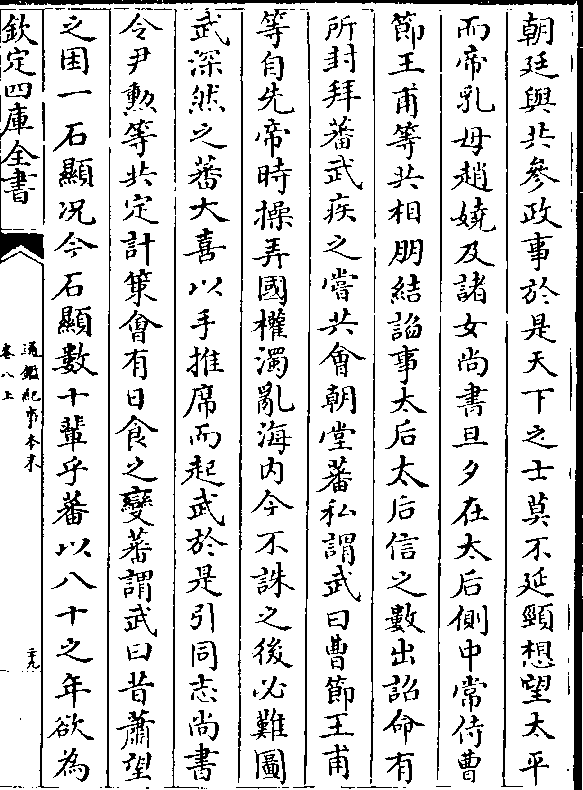 朝廷與共參政事於是天下之士莫不延頸想望太平
而帝乳母趙嬈及諸女尚書旦夕在太后側中常侍曹
節王甫等共相朋結諂事太后太后信之數出詔命有
所封拜蕃武疾之嘗共會朝堂蕃私謂武曰曹節王甫
等自先帝時操弄國權濁亂海內今不誅之後必難圖
武深然之蕃大喜以手推席而起武於是引同志尚書
令尹勲等共定計策會有日食之變蕃謂武曰昔蕭望
之困一石顯况今石顯數十輩乎蕃以八十之年欲為
欽定四庫全書
通鑑紀事本末
卷八上
二十九